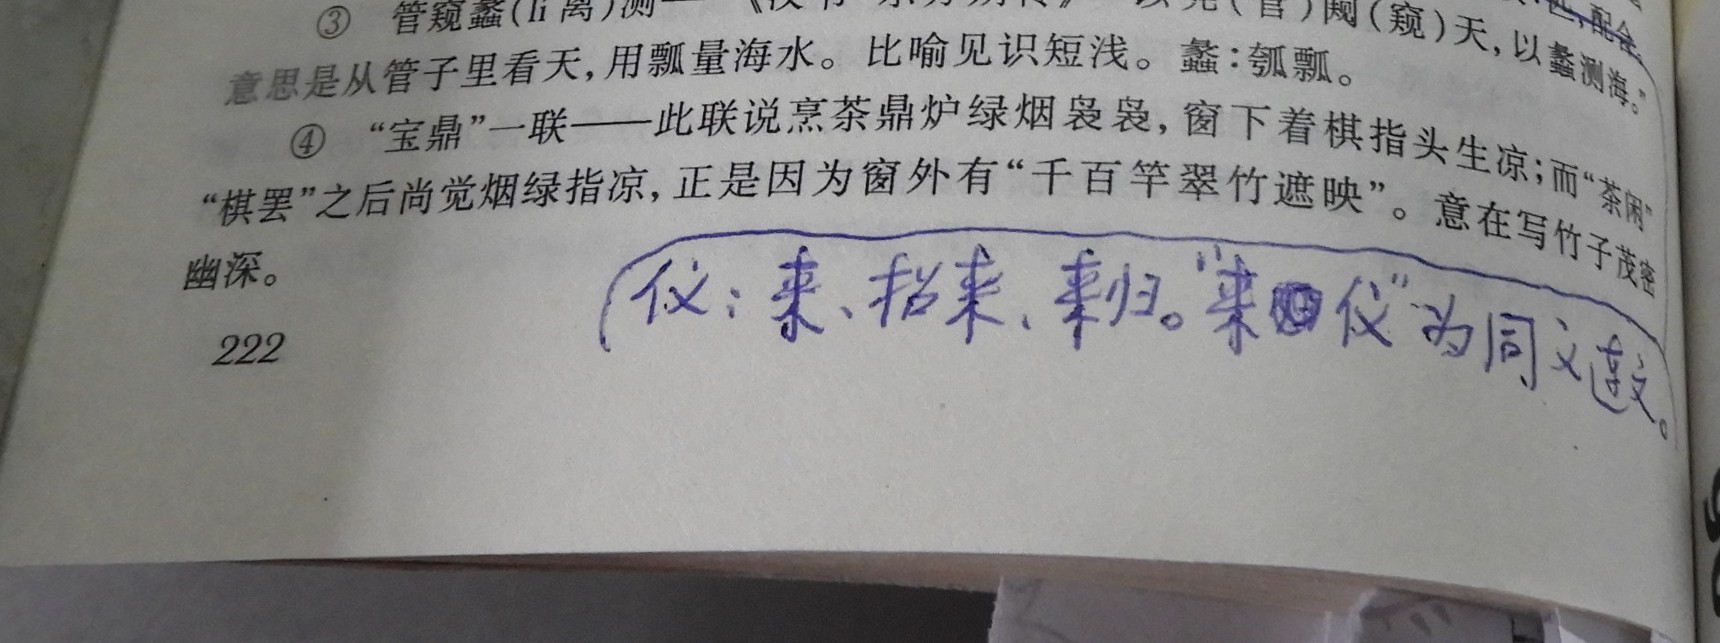 ③ 管窥蠡(lí离)测——《汉书·东方朔传》:“以筦(管)闚(窥)天,以蠡测海。”
匹,配合
意思是从管子里看天,用瓢量海水。比喻见识短浅。蠡:瓠瓢。
④ “宝鼎”一联——此联说烹茶鼎炉绿烟袅袅,窗下着棋指头生凉;而“茶闲”
“棋罢”之后尚觉烟绿指凉,正是因为窗外有“千百竿翠竹遮映”。意在写竹子茂密
幽深。
仪:来、招来、来归。“来仪”为同义连文。
222